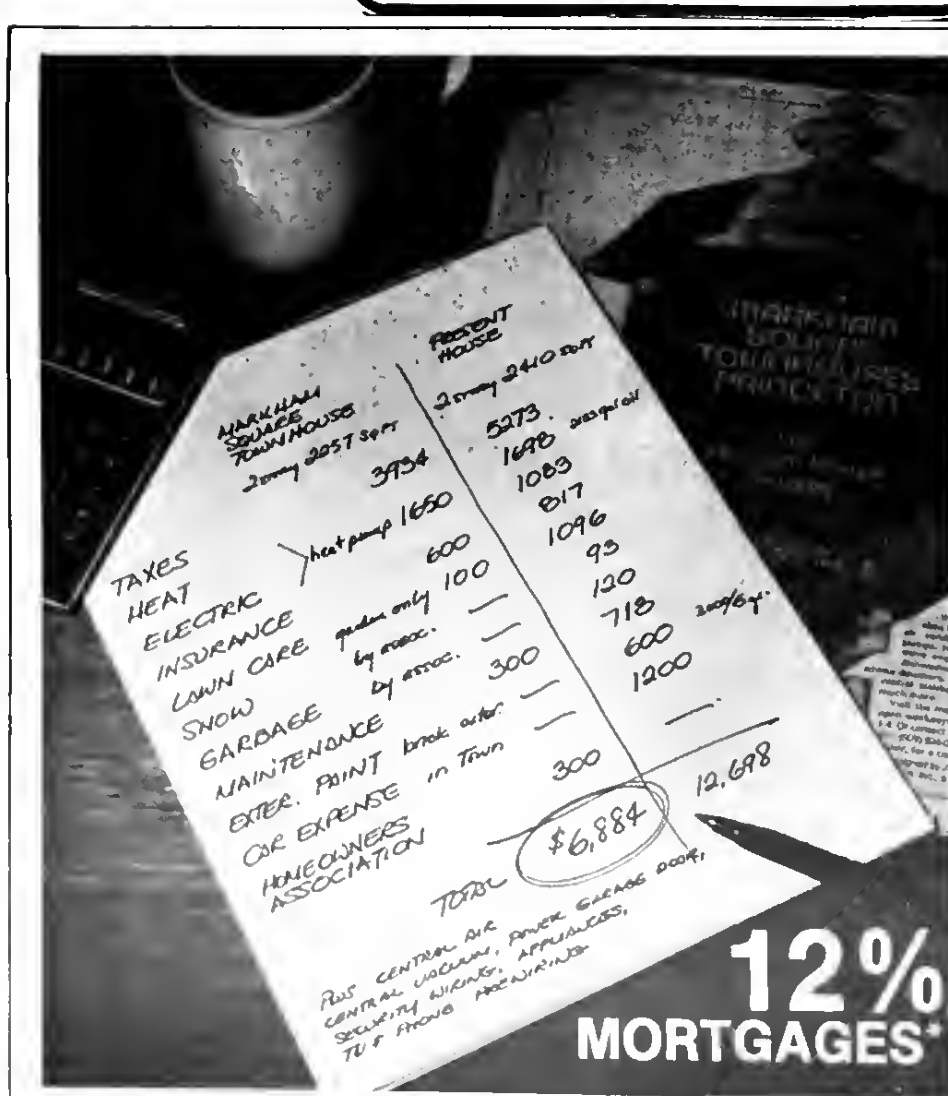 MARKHAM
SQUARE
TOWNHOUSE
2 story 2257 SQ FT
PRESENT
HOUSE
2 story 2410 SQ FT
TAXES 3934 5273
HEAT heat pump 1650 1698 gal oil
ELECTRIC 1083
INSURANCE 600 817
LAWN CARE garden only 100 1096
SNOW by assoc. — 93
GARBAGE by assoc. — 120
MAINTENANCE 300 718
EXTER. PAINT brick exter. — 600
CAR EXPENSE in Town — 1200
HOMEOWNERS
ASSOCIATION 300 —
TOTAL $6,884 12,698
PLUS CENTRAL AIR
CENTRAL VACUUM, POWER GARAGE DOOR,
SECURITY WIRING, APPLIANCES,
TV & PHONE PREWIRING
MARKHAM
SQUARE
TOWNHOUSES
PRINCETON
12%
MORTGAGES*